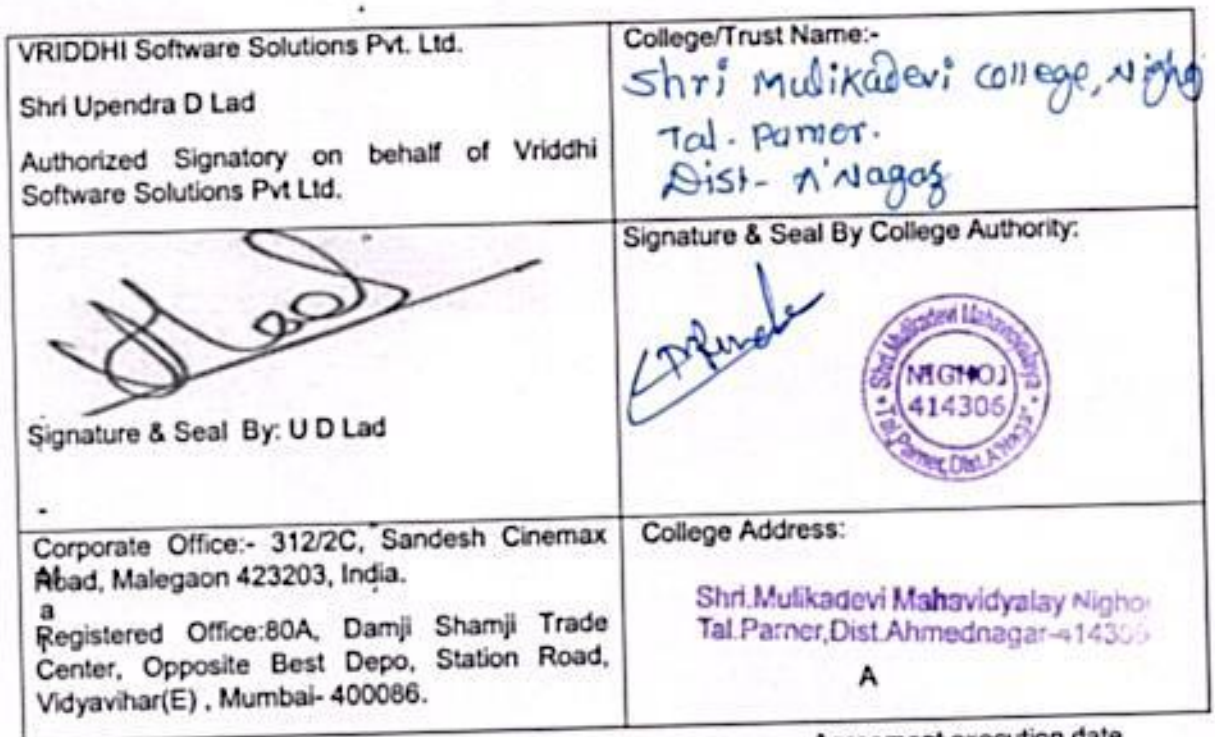 VRIDDHI Software Solutions Pvt. Ltd.
Shri Upendra D Lad
Authorized Signatory on behalf of Vriddhi
Software Solutions Pvt Ltd.
College/Trust Name:-
Shri Mulikadevi College, Nighoj
Tal. Parner.
Dist- A'Nagar
Signature & Seal By: U D Lad
Signature & Seal By College Authority:
Shri.Mulikadevi Mahavidyalaya
NIGHOJ
414306
Tal.Parner,Dist.A'Nagar
Corporate Office:- 312/2C, Sandesh Cinemax
Road, Malegaon 423203, India.
a
Registered Office:80A, Damji Shamji Trade
Center, Opposite Best Depo, Station Road,
Vidyavihar(E) , Mumbai- 400086.
College Address:
Shri.Mulikadevi Mahavidyalay Nighoj
Tal.Parner,Dist.Ahmednagar-414306
A
Agreement execution date